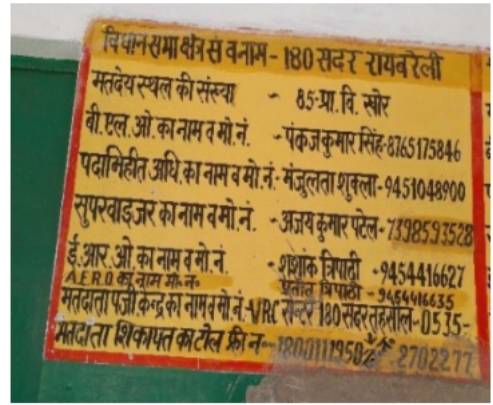 विधान सभा क्षेत्र सं व नाम - 180 सदर रायबरेली
मतदेय स्थल की संख्या - 85-प्रा. वि. खोर
बी. एल. ओ. का नाम व मो. नं. - पंकज कुमार सिंह-8765175846
पदाभिहीत अधि. का नाम व मो. नं.- मंजुलता शुक्ला-9451048900
सुपरवाइजर का नाम व मो. नं. - अजय कुमार पटेल-7398593528
ई. आर. ओ. का नाम व मो. नं. - शशांक त्रिपाठी -9454416627
A.E.R.O का नाम मो. नं. त्रिपाठी - 9454416635
मतदाता पंजी. केन्द्र का नाम व मो. नं.-VRC सेन्टर 180 सदर तहसील-0535-
मतदाता शिकायत का टोल फ्री नं- 18001111950 2702277